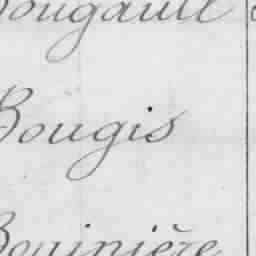 Bougault
Bougis
Bouinière